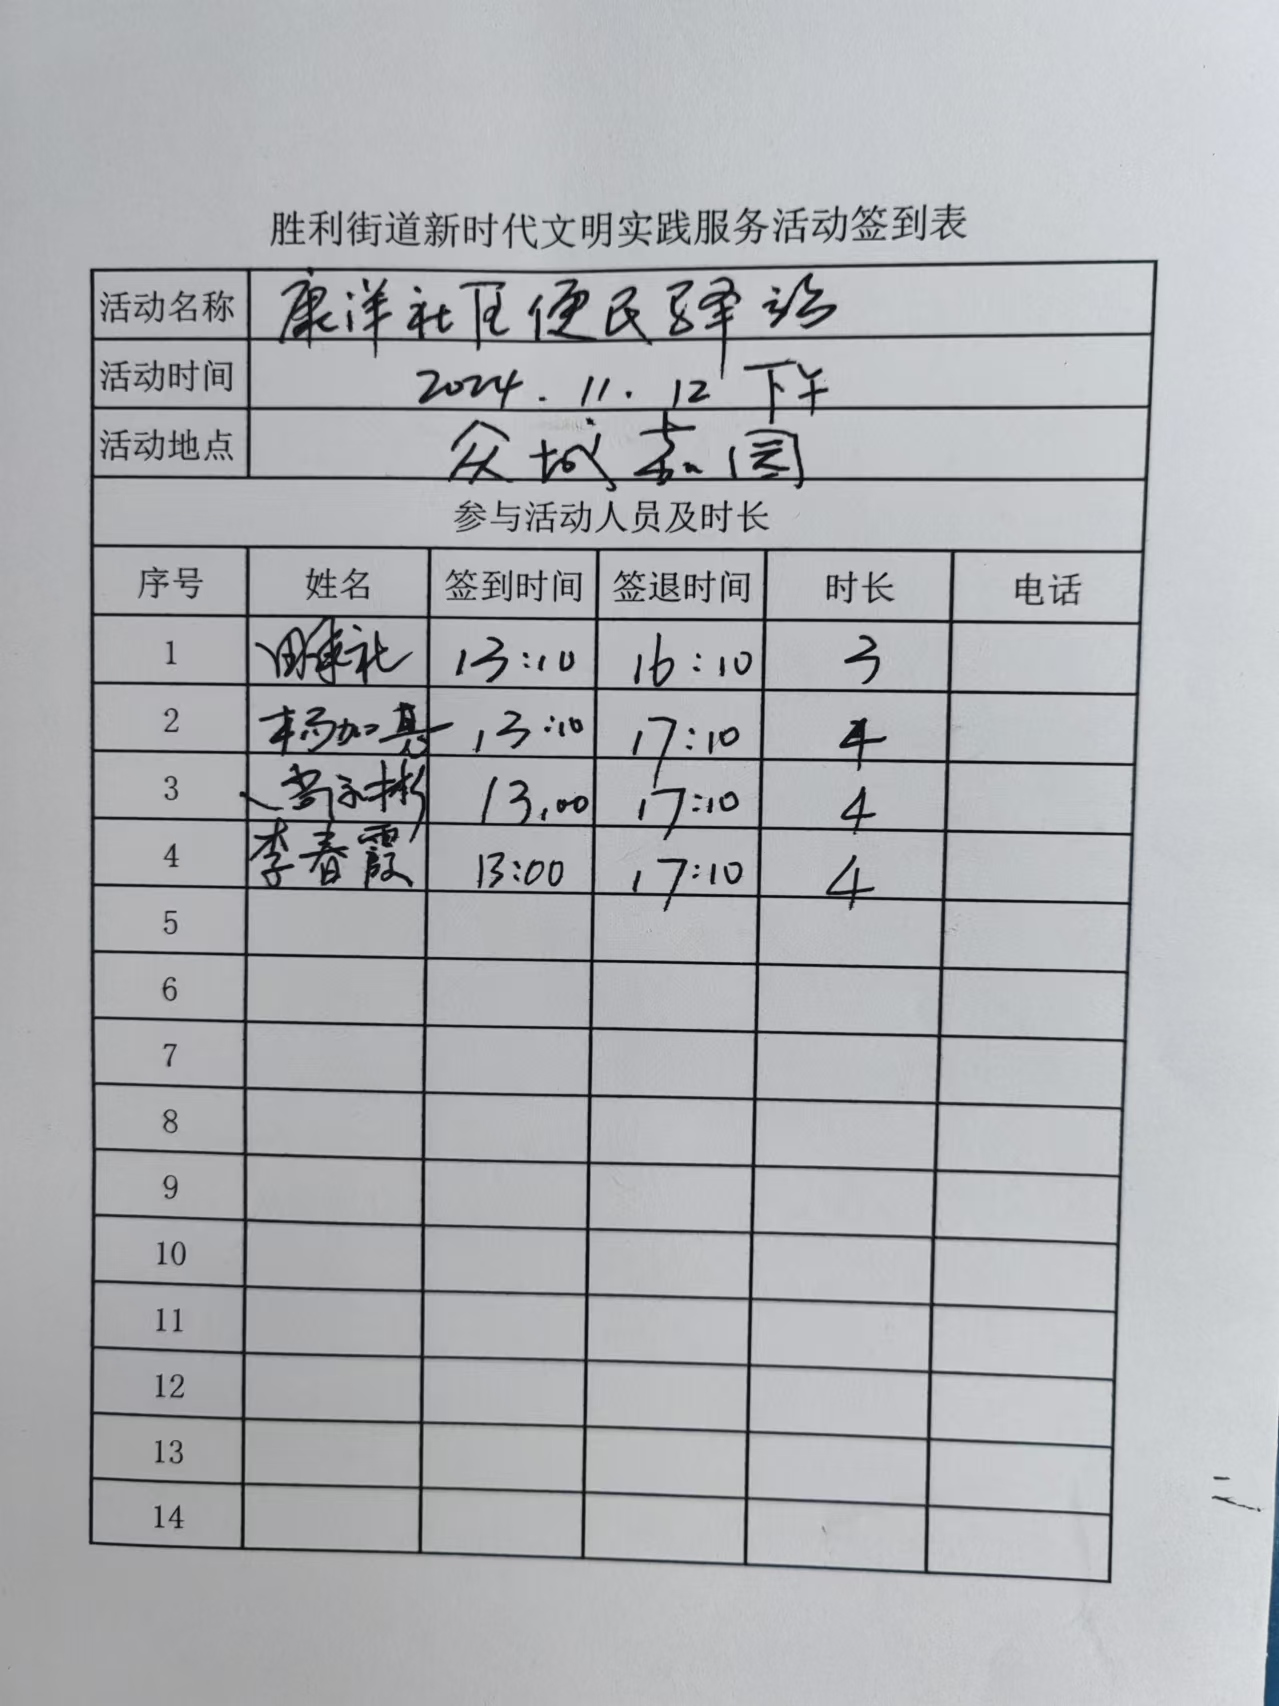 胜利街道新时代文明实践服务活动签到表
活动名称 康洋社区便民驿站
活动时间 2024.11.12 下午
活动地点 众城嘉园
参与活动人员及时长
序号 姓名 签到时间 签退时间 时长 电话
1 13:10 16:10 3
2 杨加 13:10 17:10 4
3 13:00 17:10 4
4 李春霞 13:00 17:10 4
5
6
7
8
9
10
11
12
13
14